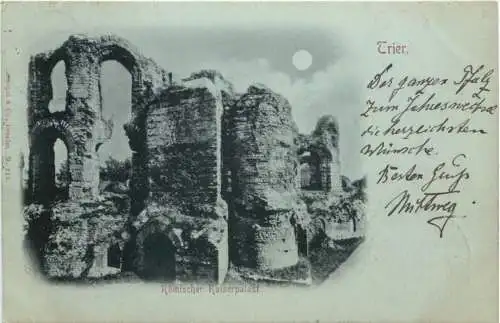 Trier.
Der ganzen Pfalz
zum Jahreswechsel
die herzlichsten
Wünsche.
Besten Gruß
Mittweg
Römischer Kaiserpalast